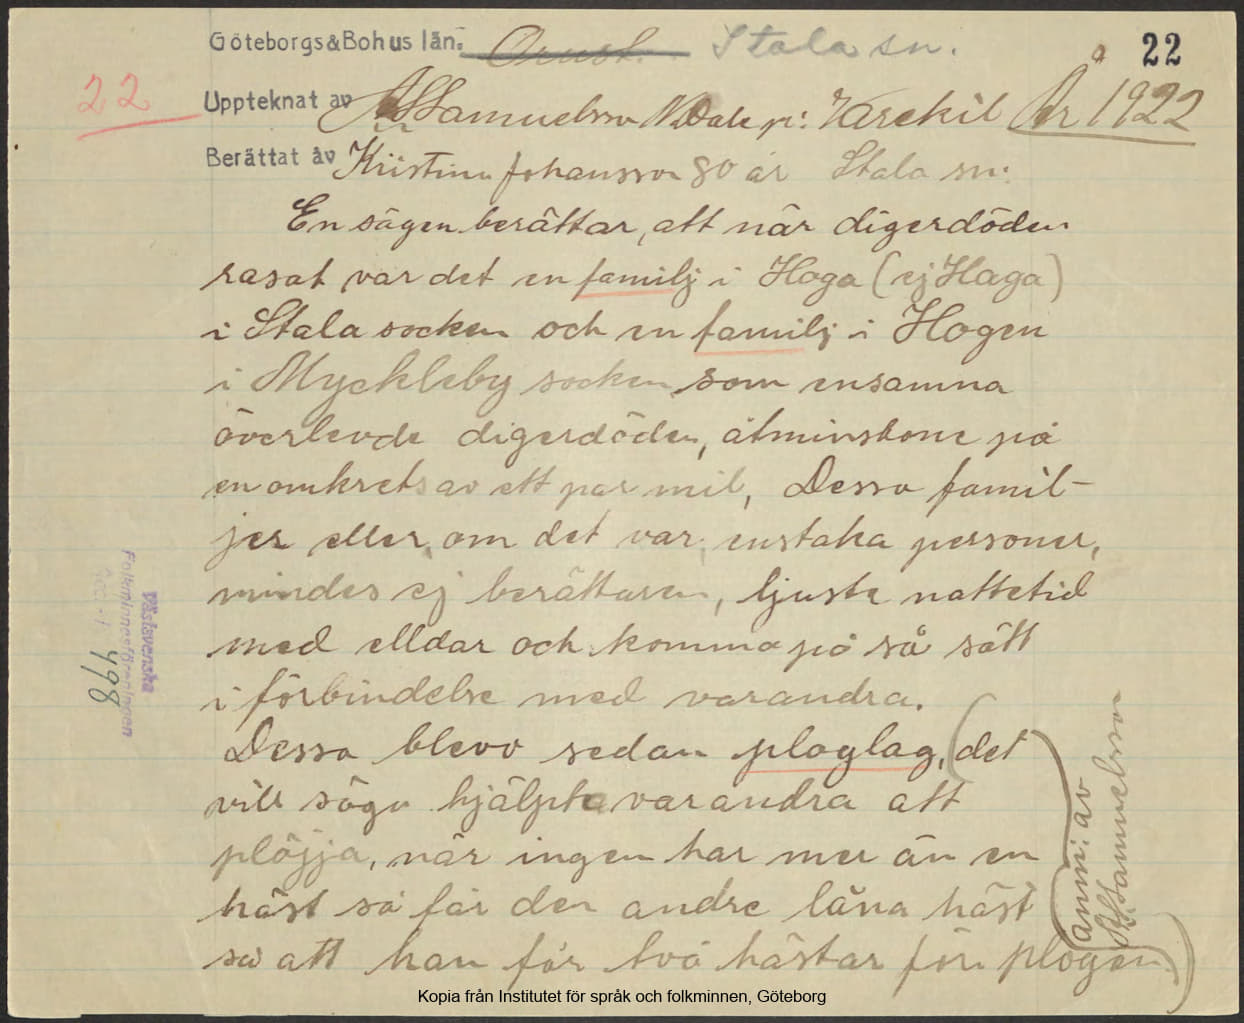 Göteborgs&Bohus län. Orust. Stala sn. 22
22
Uppteknat av Samuelsson N. Dale p: Varekil År 1922
Berättat av Kristina Johansson 80 år Stala sn.
En sägen berättar, att när digerdöden
rasat var det en familj i Hoga (ej Haga)
i Stala socken och en familj i Hogen
i Myckleby socken som ensamna
överlevde digerdöden, åtminstone på
en omkrets av ett par mil, Dessa famil-
jer eller om det var enstaka personer,
mindes ej berättaren, ljuste nattetid
med elldar och komma på så sätt
i förbindelse med varandra.
Dessa blevo sedan ploglag, (det
vill säga hjälpte varandra att
plöjja, när ingen har mer än en
häst så får den andre låna häst
så att han får två hästar för plogen)
anm: av
Samuelsson
Västsvenska
Folkminnesföreningen
498
Kopia från Institutet för språk och folkminnen, Göteborg